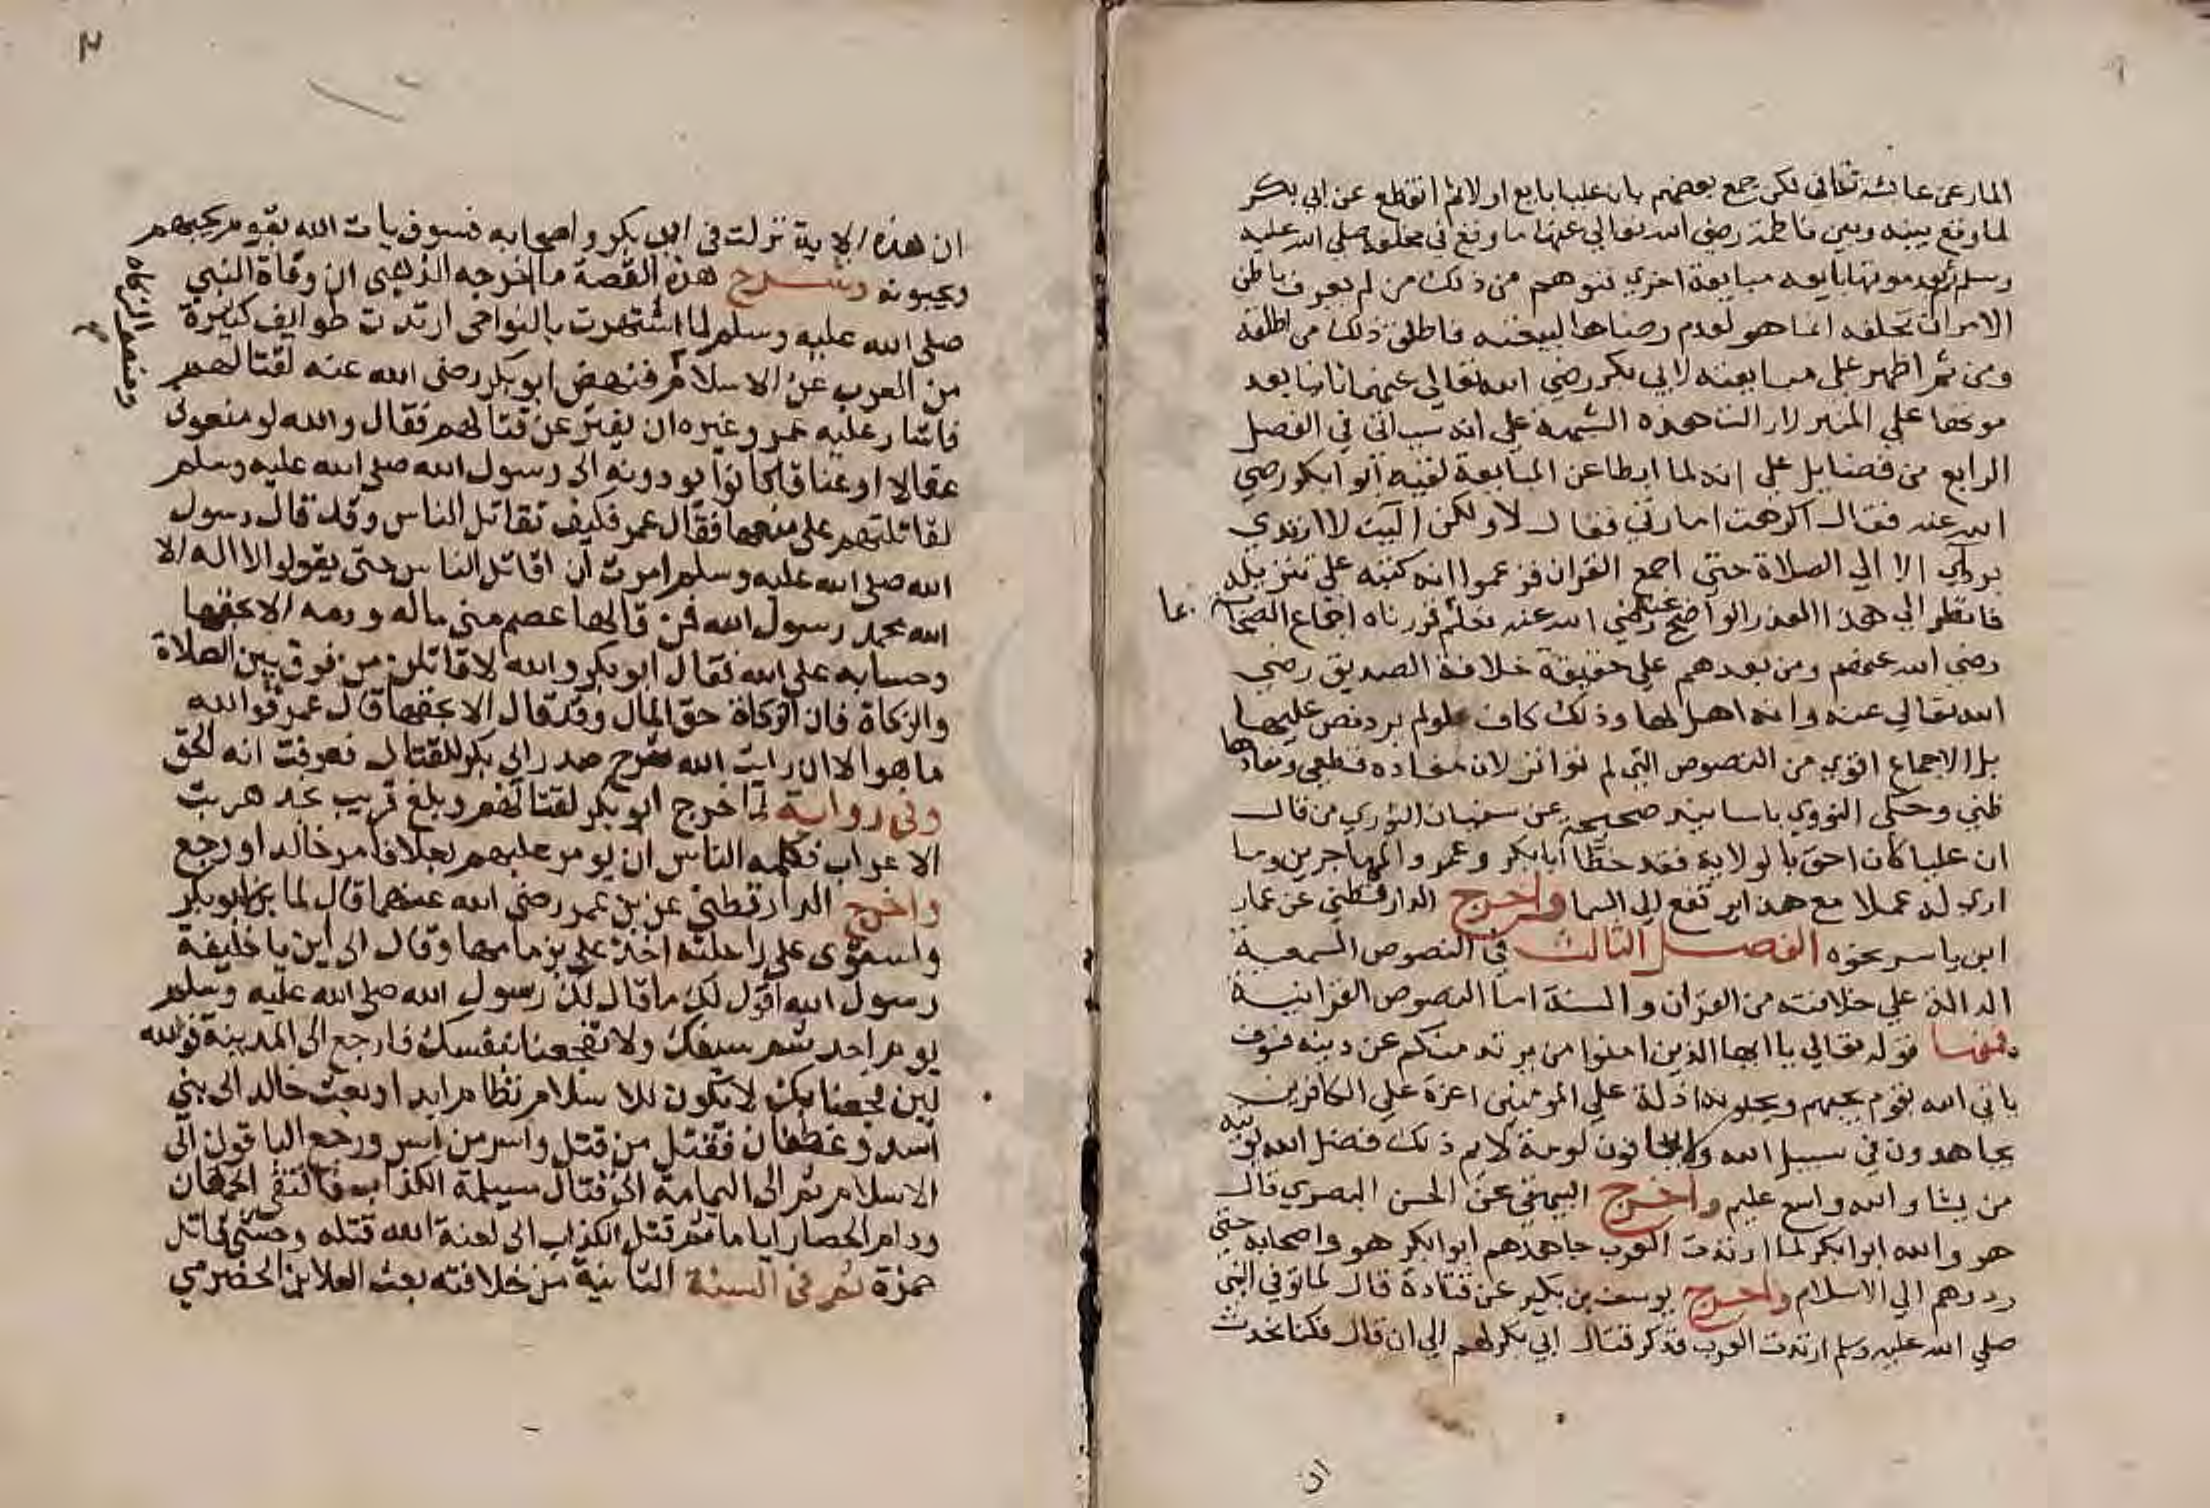 المار عن عائشة تعالى لكن جمع بعضهم بان عليا بايع اولا ثم انقطع عن ابي بكر
لما وقع بينه وبين فاطمة رضي الله تعالى عنها ما وقع في مخلفه صلى الله عليه
وسلم ثم بعد موتها بايعه مبايعة اخرى فتوهم من ذلك من لم يعرف باطن
الامر ان تخلفه انما هو لعدم رضاها ببيعته فاطلق ذلك من اطلقه
ومن ثم اظهر علي مبايعته لابي بكر رضي الله تعالى عنهما ثانيا بعد
موتها على المنبر لازالت هذه الشبهة على انه سياتي في الفصل
الرابع من فضايل علي انه لما ابطا عن المبايعة لقيه ابو ابكر رضي
الله عنه فقال اكرهت امارتي فقال لا ولكن اليت لا ارتدي
برداي الا الى الصلاة حتى اجمع القران فزعموا انه كتبه على تنزيله
فانظر الى هذا العذر الواضح رضي الله عنه تعلم قررناه اجماع الصحابة
عنه
بما
رضي الله عنهم ومن بعدهم على حقيقة خلافة الصديق رضي
الله تعالى عنه وانه اهل لها وذلك كاف لو لم يرد نص عليها
بل الاجماع اقوى من النصوص التي لم تواتر لان مفاده قطعي ومفادها
ظني وحكى النووي باسانيد صحيحة عن سفيان الثوري من قال
ان عليا كان احق بالولاية فقد خطا ابا بكر وعمر والمهاجرين وما
ارى له عملا مع هذا يرتفع الى السما واخرج الدارقطني عن عمار
ابن ياسر نحوه الفصل الثالث في النصوص السمعية
الدالة على خلافته من القران والسنة اما النصوص القرانية
فمنها قوله تعالى يا ايها الذين امنوا من يرتد منكم عن دينه فسوف
ياتي الله بقوم يحبهم ويحبونه اذلة على المومنين اعزة على الكافرين
يجاهدون في سبيل الله ولا يخافون لومة لايم ذلك فضل الله يوتيه
من يشا والله واسع عليم واخرج البيهقي عن الحسن البصري قال
هو والله ابوا بكر لما ارتدت العرب جاهدهم ابوا بكر هو واصحابه حتى
ردرهم الى الاسلام واخرج يوسف بن بكير عن قتادة قال لما توفي النبي
صلى الله عليه وسلم ارتدت العرب فذكر قتال ابي بكر لهم الى ان قال فكنا نحدث
ان
٢
ان هذه الاية نزلت في ابي بكر واصحابه فسوف يات الله بقوم يحبهم
ويحبونه وشرح هذه القصة ما اخرجه الذهبي ان وفاة النبي
صلى الله عليه وسلم لما اشتهرت بالنواحي ارتدت طوايف كثيرة
من العرب عن الاسلام فنهض ابو بكر رضي الله عنه لقتالهم
ومنعوا الزكاة
فاشار عليه عمر وغيره ان يفتر عن قتالهم فقال والله لو منعوني
عقالا او عناقا كانوا يودونه الى رسول الله صلى الله عليه وسلم
لقاتلتهم على منعها فقال عمر فكيف تقاتل الناس وقد قال رسول
الله صلى الله عليه وسلم امرت ان اقاتل الناس حتى يقولوا لا اله الا
الله محمد رسول الله فمن قالها عصم مني ماله ودمه الا بحقها
وحسابه على الله فقال ابو بكر والله لاقاتلن من فرق بين الصلاة
والزكاة فان الزكاة حق المال وقد قال الا بحقها قال عمر فوالله
ما هو الا ان رايت الله شرح صدر ابي بكر للقتال فعرفت انه الحق
وفي رواية لما خرج ابو بكر لقتالهم وبلغ قريب نجد هربت
الاعراب فكلمه الناس ان يومر عليهم رجلا فامر خالد او رجع
واخرج الدارقطني عن بن عمر رضي الله عنهما قال لما برز ابو بكر
واستوى على راحلته اخذ علي بزمامها وقال الى اين يا خليفة
رسول الله اقول لك ما قال لك رسول الله صلى الله عليه وسلم
يوم احد شم سيفك ولا تفجعنا بنفسك فارجع الى المدينة فوالله
لين فجعنا بك لا يكون للاسلام نظام ابدا وبعث خالد الى بني
اسد وغطفان فقتل من قتل واسر من اسر ورجع الباقون الى
الاسلام ثم الى اليمامة الى قتال مسيلمة الكذاب فالتقى الجمعان
ودام الحصار اياما ثم قتل الكذاب الى لعنة الله قتله وحشي قاتل
حمزة ثم في السنة الثانية من خلافته بعث العلا بن الحضرمي